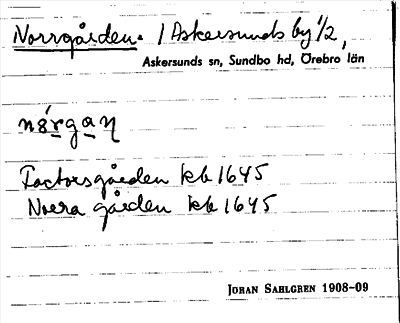 Norrgården. / Askersunds by 1/2,
Askersunds sn, Sundbo hd, Örebro län
nó̱rga̱ŋ
Factorsgården kb 1645
Norra gården kb 1645
JOHAN SAHLGREN 1908-09